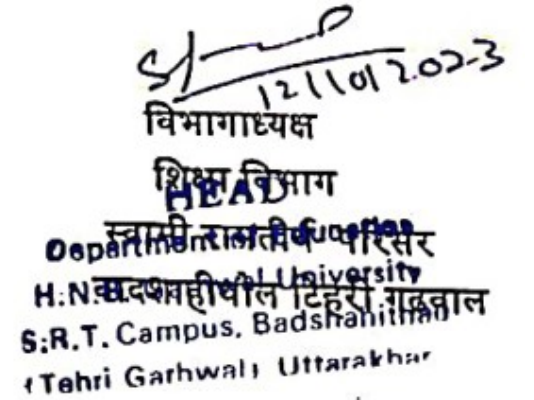 12/10/2023
विभागाध्यक्ष
शिक्षा विभाग
HEAD
स्वामी रामतीर्थ परिसर
Department
बादशाहीथौल टिहरी गढ़वाल
H.N. University
S:R.T. Campus, Badshahithaul
(Tehri Garhwal) Uttarakhar